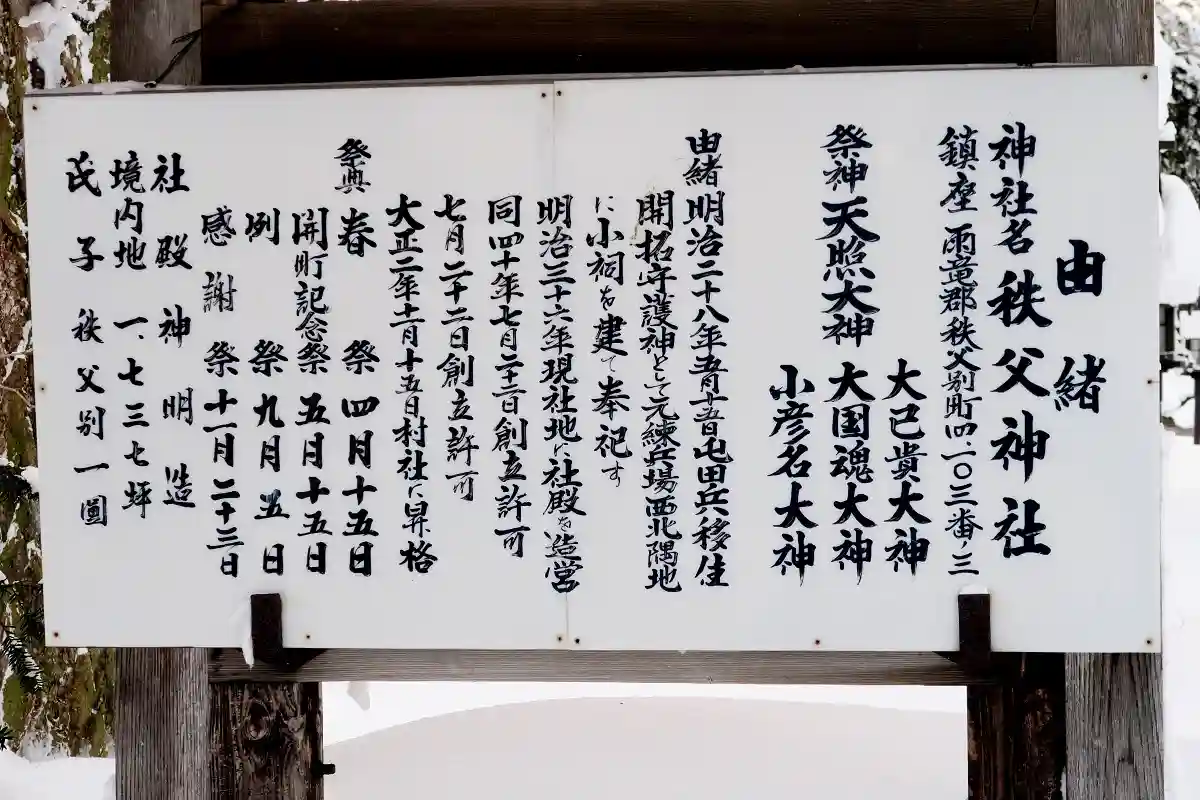 由緒
神社名 秩父神社
鎮座 雨竜郡秩父別町四一〇三番ノ三
大己貴大神
祭神 天照大神 大国魂大神
小彦名大神
由緒 明治二十八年五月十五日屯田兵移住
開拓守護神として元練兵場西北隅地
に小祠を建て奉祀す
明治三十六年現社地に社殿を造営
同四十年七月二十二日創立許可
七月二十二日創立許可
大正二年十二月十五日村社に昇格
祭典 春祭 四月十五日
開町記念祭 五月十五日
例祭 九月五日
感謝祭 十一月二十三日
社殿 神明造
境内地 一、七三七坪
氏子 秩父別一圓